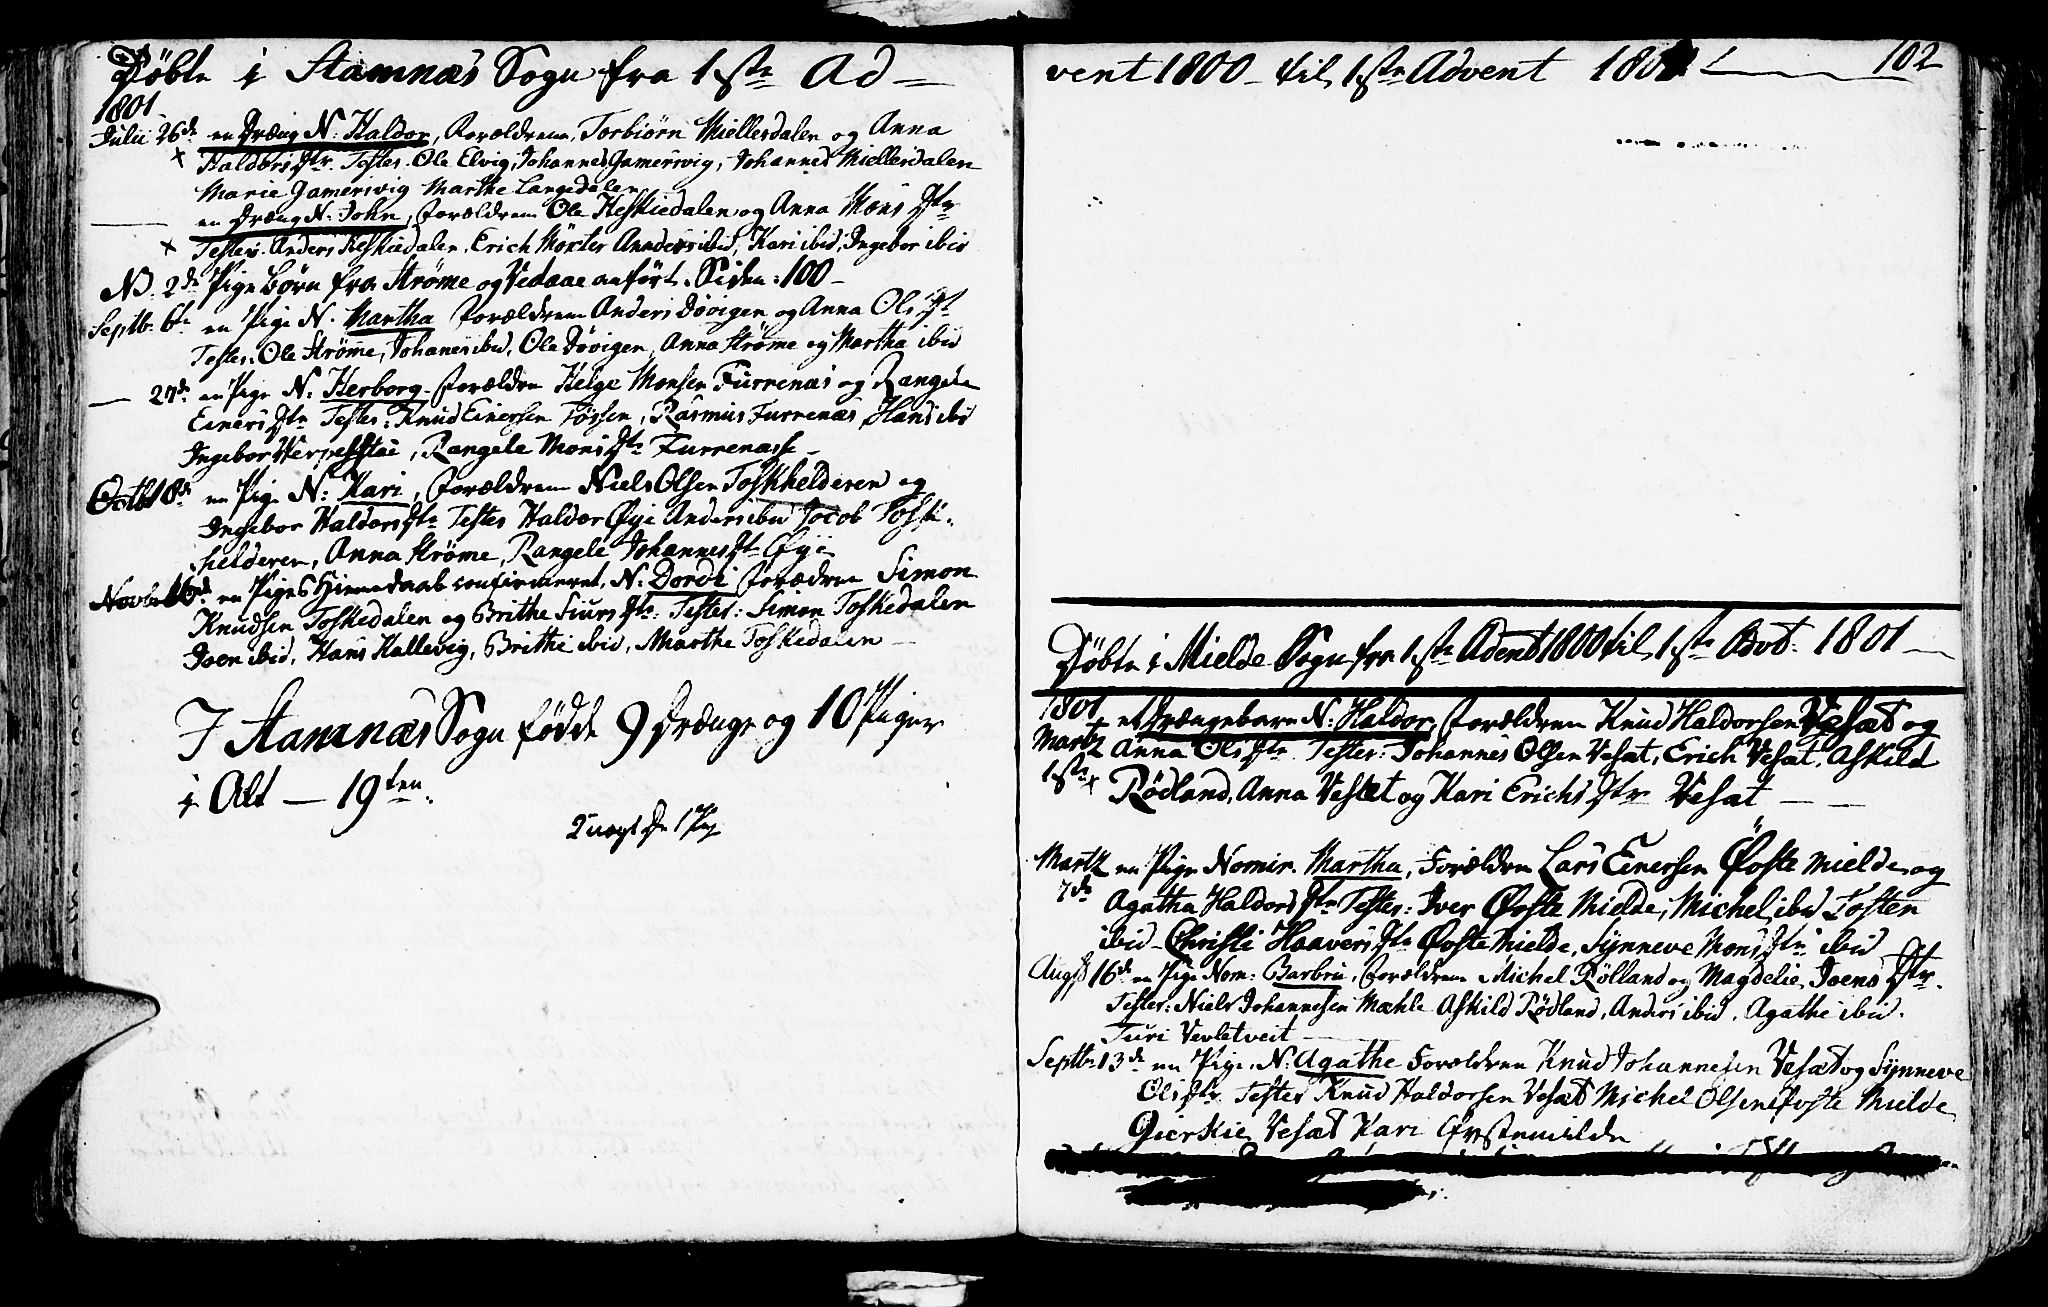 Døbte i Stamnæs Sogn fra 1ste Ad=
1801
Julii 26de en Dræng N: Haldor, Forældrene, Torbiørn Miellesdalen og Anna
Haldors Dtr. Testes. Ole Elvig, Johannes Gamersvig, Johannes Miellesdalen
Marie Gamersvig Marthe Langedalen
en Dræng N. John, forældrene Ole Heskiedalen og Anna Mons Dtr
Testes. Anders Heskiedalen, Erich Anders ibid, Kari ibid, Ingebor ibid
NB. 2de Pige Børn fra Strøme og Vedaae anført. Siden: 100 -
Septb. 6te en Pige N. Martha forældrene Anders Døvigen og Anna Ols Dt
Testes. Ole Strøme, Johanes ibid, Ole Døvigen, Anna Strøme og Martha ibid
27de en Pige N: Herborg forældre Helge Monsen Furrenæs og Rangele
Einers Dtr Testes: Knud Einersen Tøssen, Rasmus Furrenæs, Hans ibid
Ingebor, Rangele Mons Dtr Furrenæss -
Octb 18de en Pige N: Kari, forældrene Niels Olsen Toskhelderen og
Ingebor Haldors Dtr Testes Haldor Øye Anders ibid Jacob Toski-
helderen, Anna Strøme, Rangele Johannes Dt Øye
Novb en Pige Hiemedaab confirmeret. N: Dordi forædre Simon
Knudsen Toskedalen og Brithe Siurs Dtr: Testes: Simon Toskedalen
Joen ibid, Hans Kallevig, Brithe ibid, Marthe Toskedalen -
I Stamnæs Sogn fødde 9 Drænge og 10 Piger
i Alt - 19ten.
2 uægt Dr 1 Pig
vent 1800 - til 1ste Advent 1801 102
Døbte i Mielde Sogn fra 1ste Advent 1800 til 1ste Advt. 1801
1801 et Drængebarn N: Haldor, forældrene Knud Haldorsen Vesæt og
Martz Anna Ols Dtr Testes: Johannes Olsen Vesæt, Erich Vesæt, Askild
1ste Rødland, Anna Vesæt og Kari Erichs Dtr Vesæt - -
Martz en Pige Nomin. Martha, Forældre Lars Einersen Øvste Mielde og
7de Agatha Haldors Dtr Testes: Iver Øvste Mielde, Michel ibid Tosten
ibid - Christi Haavers Dtr Øvste Mielde, Synneve Mons Dtr ibid
Augst 16de en Pige Nom: Barbru, forældrene Michel Rølland og Magdelie Joens Dtr.
Testes: Niels Johannesen Mæhle Askild Rødland, Anders ibid, Agathe ibid.
Turi Vevletveit
Septb 13de en Pige. N: Agathe Forældrene Knud Johannesen Vesæt og Synneve
Ols Dtr Testes Knud Haldorsen Vesæt Michel Olsen Øvste Mielde
Gierkie Vesæt Kari Øvstemielde